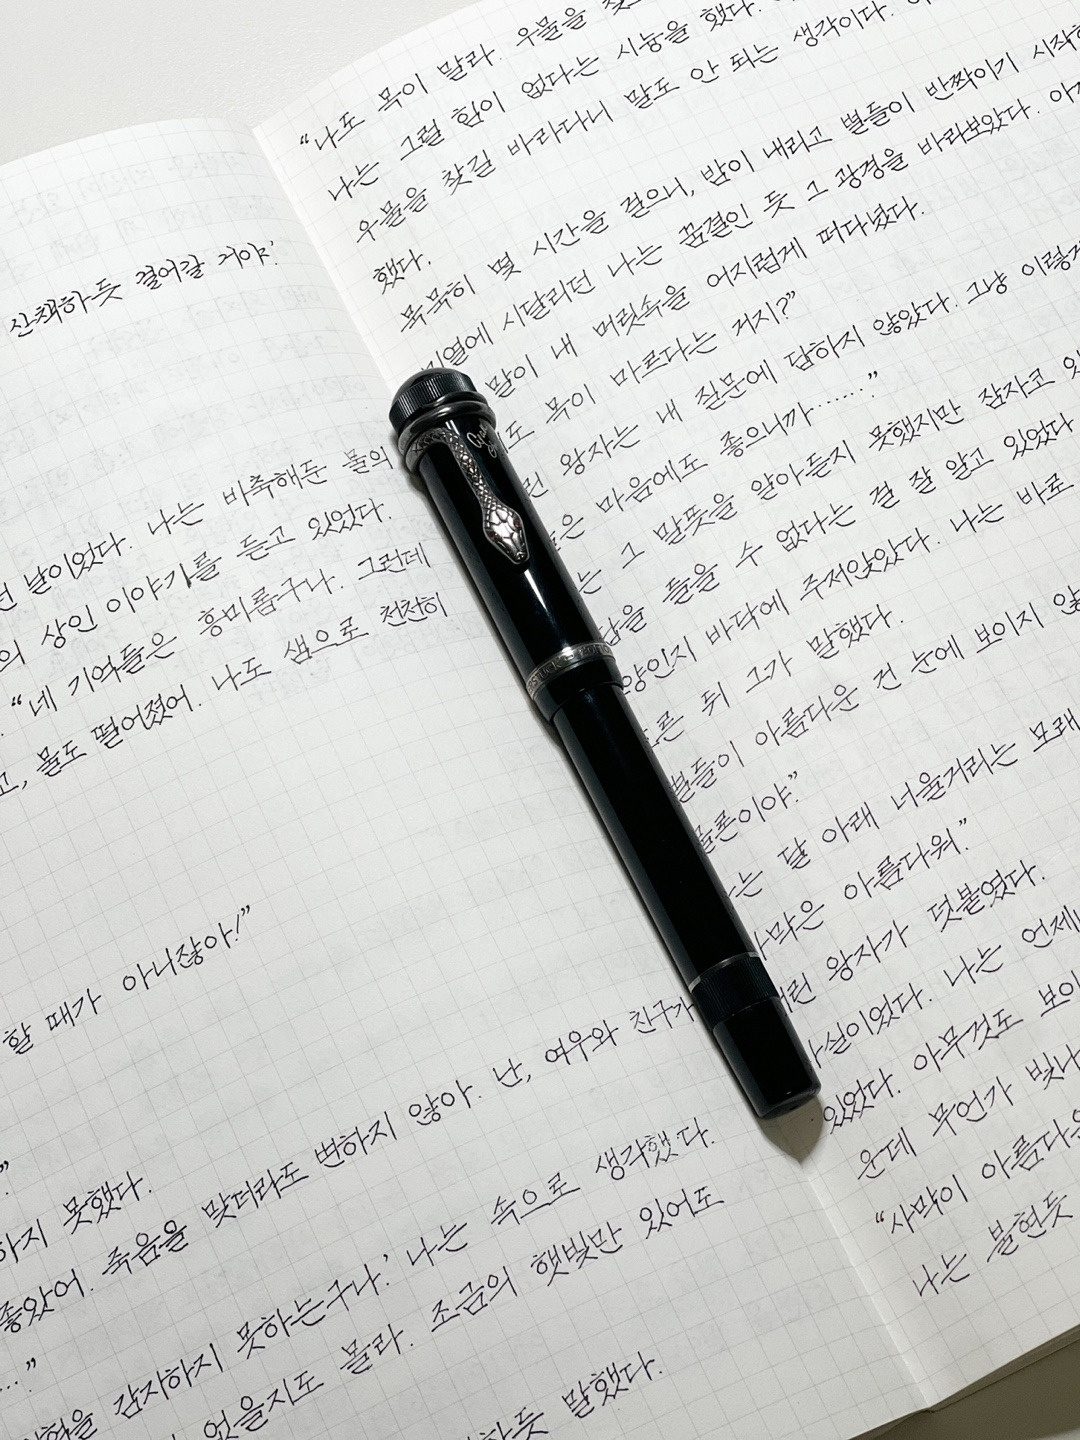 산책하듯 걸어갈 거야.'
날이었다. 나는 비축해둔 물의
의 상인 이야기를 듣고 있었다.
"네 기억들은 흥미롭구나. 그런데
고, 물도 떨어졌어. 나도 샘으로 천천히
할 때가 아니잖아!"
"
하지 못했다.
좋았어. 죽음을 맞더라도 변하지 않아. 난, 여우와 친구가
…"
감지하지 못하는구나.' 나는 속으로 생각했다.
없을지도 몰라. 조금의 햇빛만 있어도
하듯 말했다.
"나도 목이 말라. 우물을
나는 그럴 힘이 없다는 시늉을 했다.
우물을 찾길 바라다니 말도 안 되는 생각이다.
했다.
묵묵히 몇 시간을 걸으니, 밤이 내리고 별들이 반짝이기
미열에 시달리던 나는 꿈결인 듯 그 광경을 바라보았다.
말이 내 머릿속을 어지럽게 떠다녔다.
도 목이 마르다는 거지?"
린 왕자는 내 질문에 답하지 않았다. 그냥 이렇게
은 마음에도 좋으니까……."
는 그 말뜻을 알아듣지 못했지만 잠자코
답을 들을 수 없다는 걸 잘 알고 있었다
양인지 바닥에 주저앉았다. 나는 바로
른 뒤 그가 말했다.
별들이 아름다운 건 눈에 보이지
물론이야."
는 달 아래 너울거리는 모래
사막은 아름다워."
어린 왕자가 덧붙였다.
사실이었다. 나는 언제
있었다. 아무것도 보이
운데 무언가 빛나
"사막이 아름다운
나는 불현듯